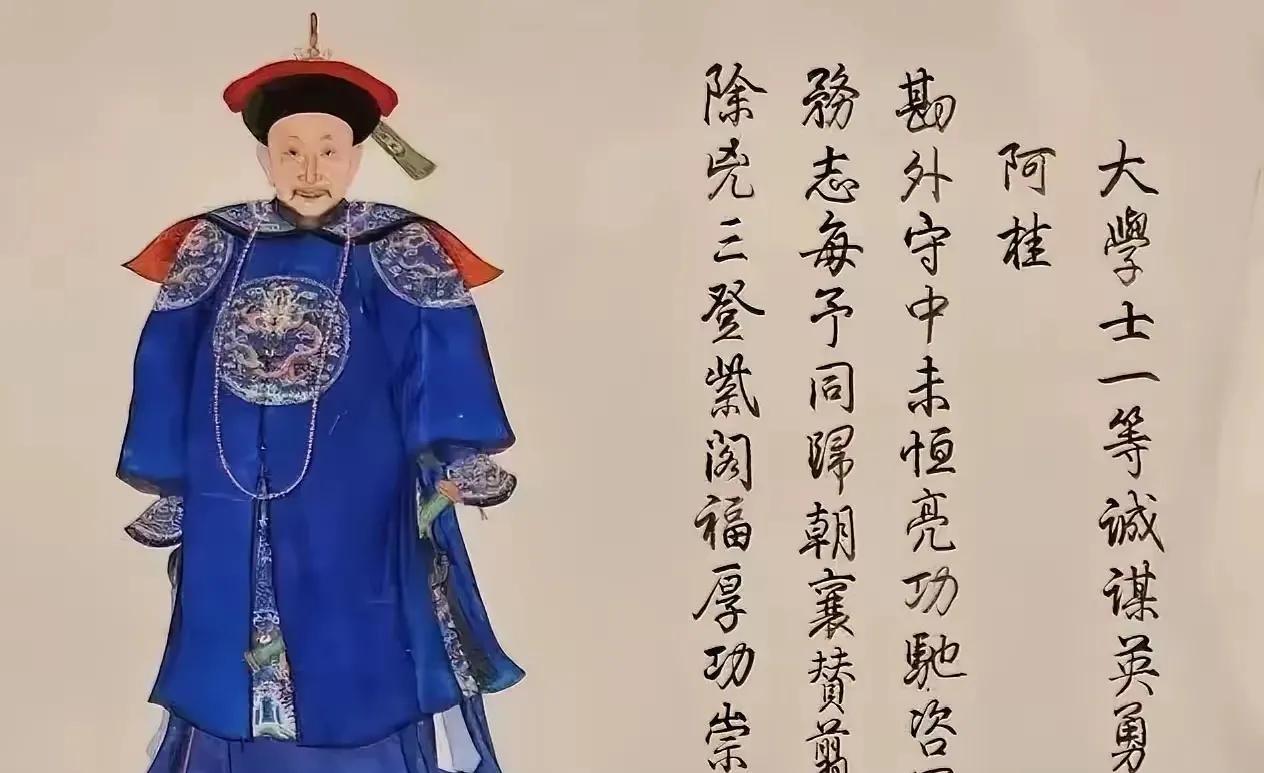 大學士一等誠謀英勇
阿桂
勘外守中未恒亮功馳咨
務志每予同歸朝襄賛翦
除兇三登紫閣福厚功崇